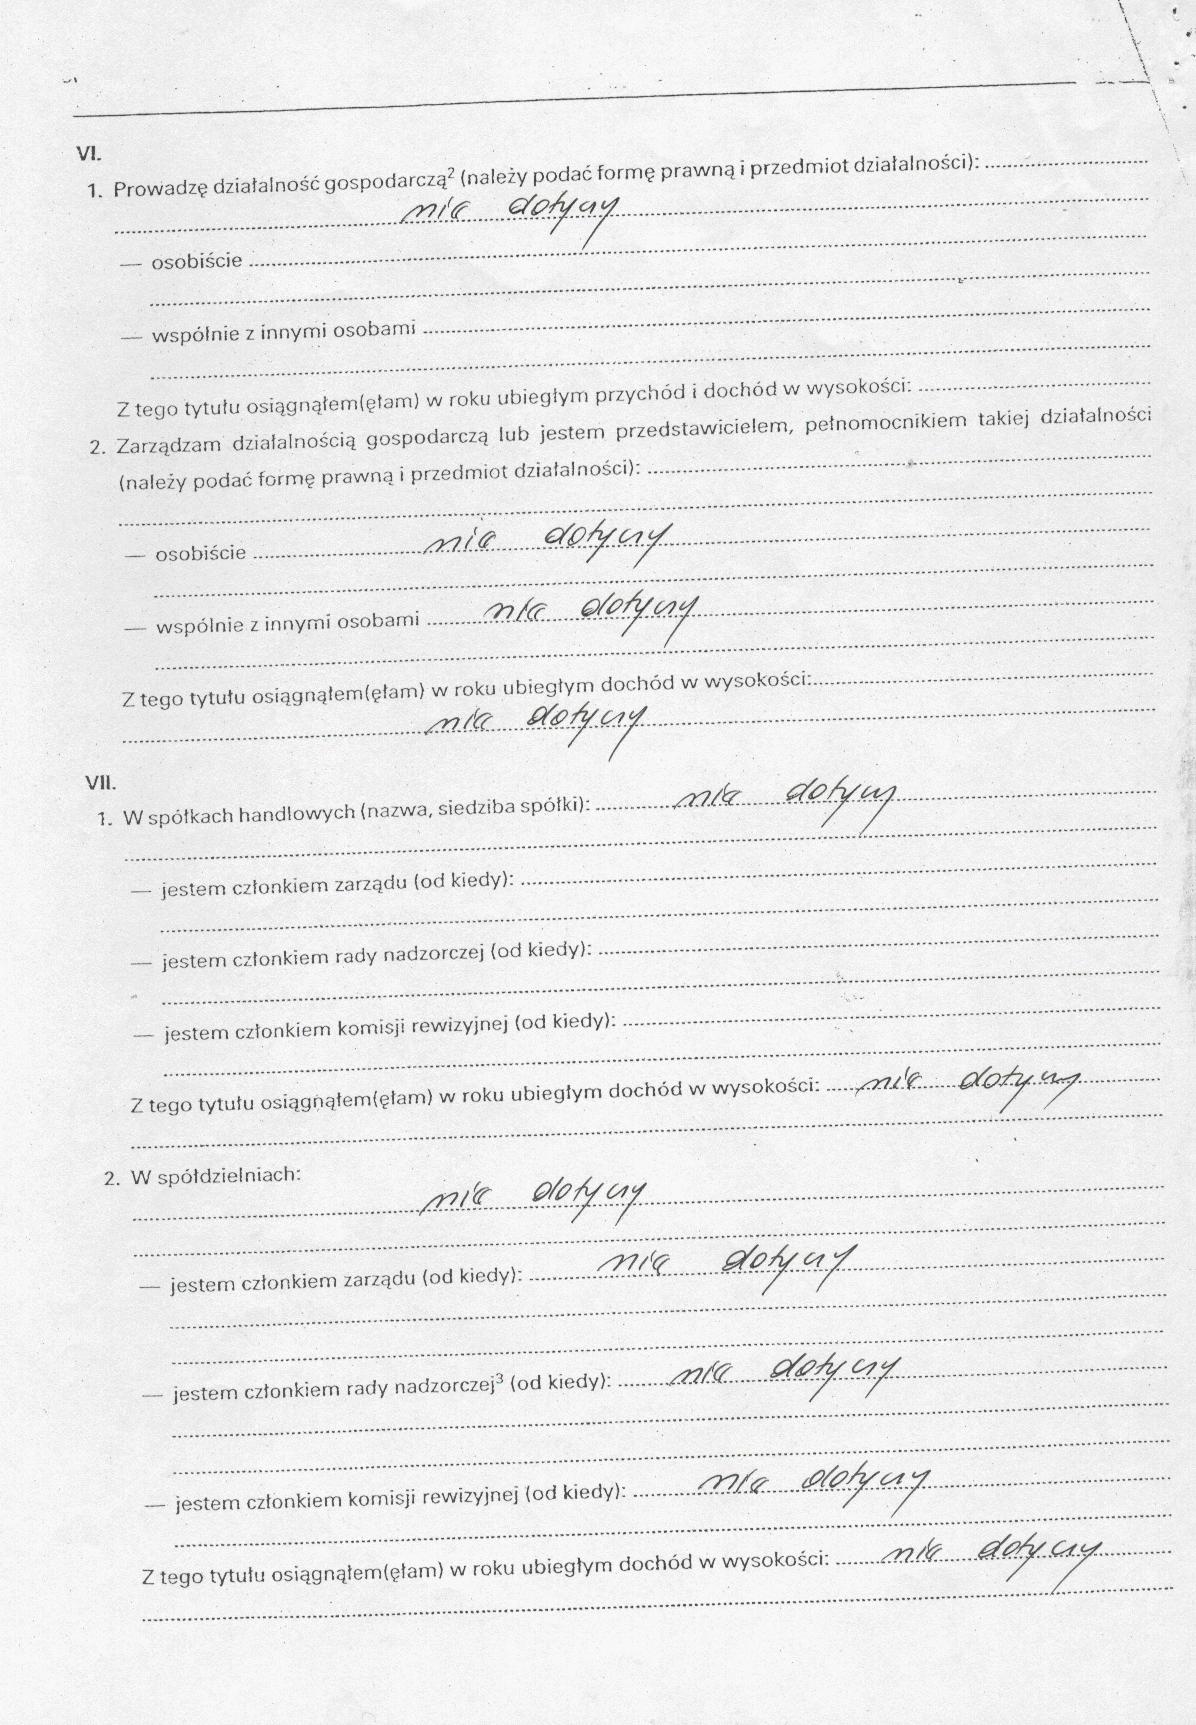 VI.
1. Prowadzę działalność gospodarczą² (należy podać formę prawną i przedmiot działalności):
nie dotyczy
— osobiście
— wspólnie z innymi osobami
Z tego tytułu osiągnąłem(ęłam) w roku ubiegłym przychód i dochód w wysokości:
2. Zarządzam działalnością gospodarczą lub jestem przedstawicielem, pełnomocnikiem takiej działalności
(należy podać formę prawną i przedmiot działalności):
— osobiście nie dotyczy
— wspólnie z innymi osobami nie dotyczy
Z tego tytułu osiągnąłem(ęłam) w roku ubiegłym dochód w wysokości:
nie dotyczy
VII.
1. W spółkach handlowych (nazwa, siedziba spółki): nie dotyczy
— jestem członkiem zarządu (od kiedy):
— jestem członkiem rady nadzorczej (od kiedy):
— jestem członkiem komisji rewizyjnej (od kiedy):
Z tego tytułu osiągnąłem(ęłam) w roku ubiegłym dochód w wysokości: nie dotyczy
2. W spółdzielniach:
nie dotyczy
— jestem członkiem zarządu (od kiedy): nie dotyczy
— jestem członkiem rady nadzorczej³ (od kiedy): nie dotyczy
— jestem członkiem komisji rewizyjnej (od kiedy): nie dotyczy
Z tego tytułu osiągnąłem(ęłam) w roku ubiegłym dochód w wysokości: nie dotyczy